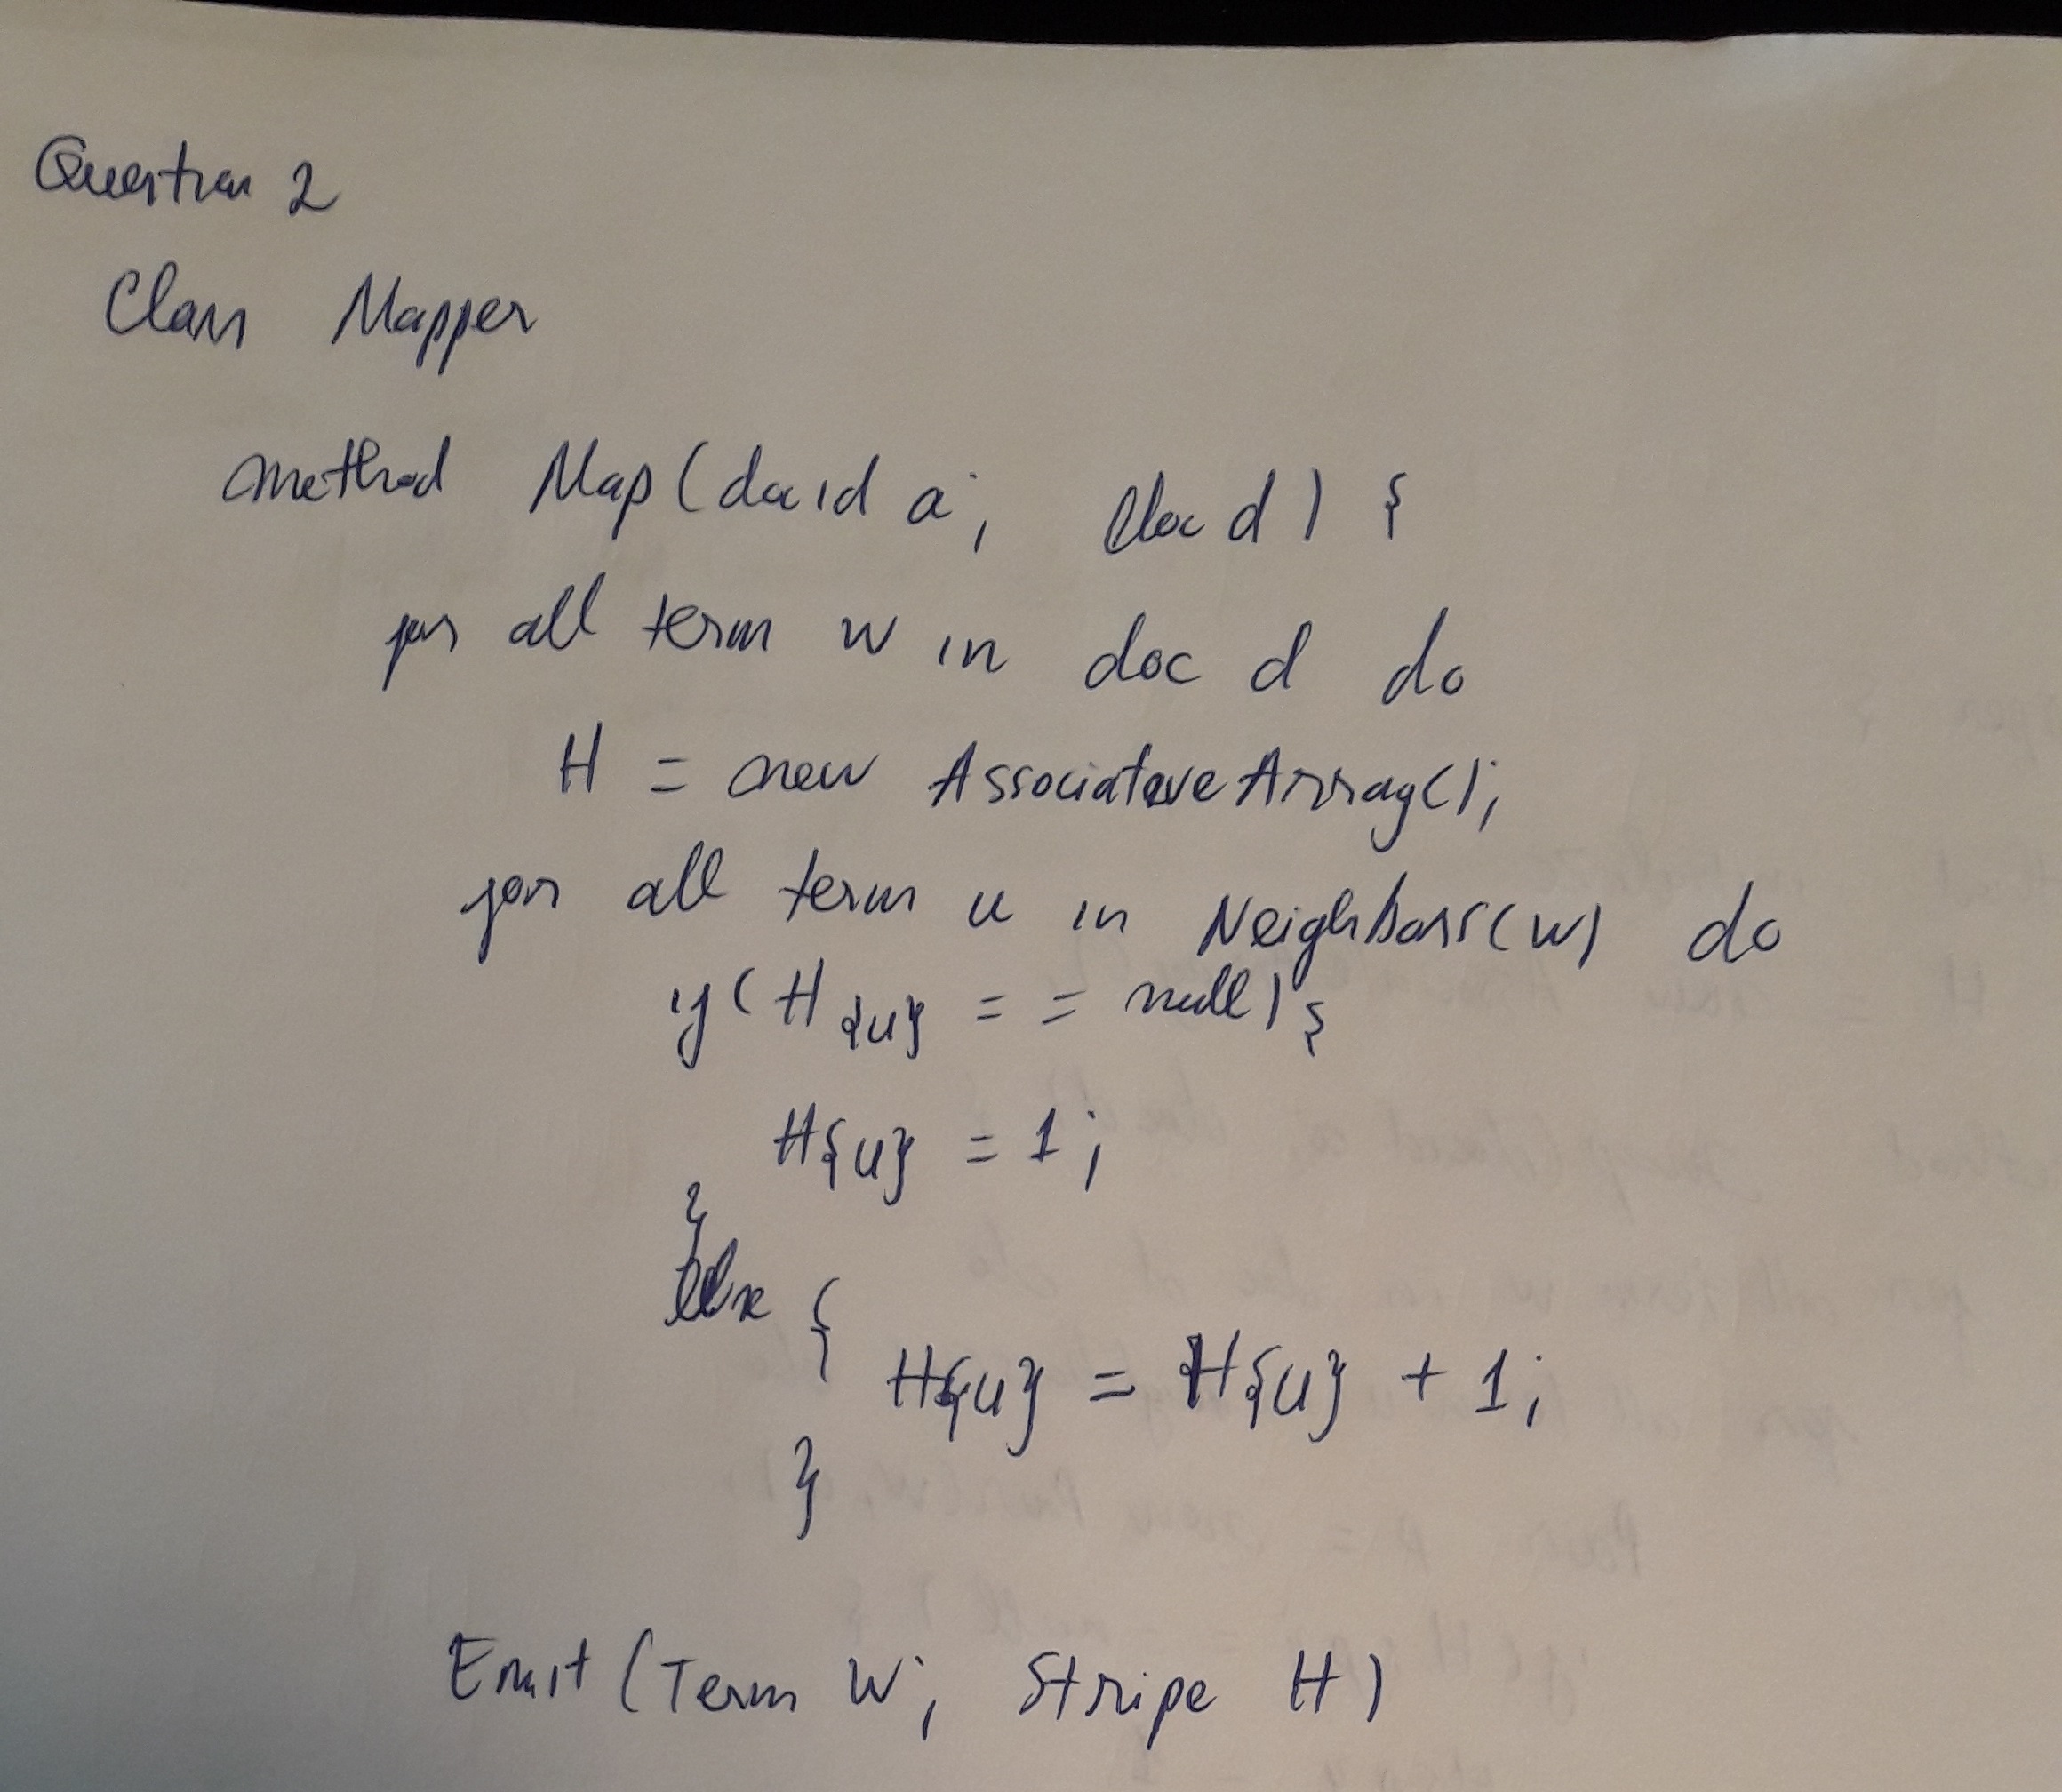 Question 2
Class Mapper
method Map(docid a; Doc d) {
for all term w in doc d do
H = new AssociativeArray();
for all term u in Neighbors(w) do
if(H{u} == null){
H{u} = 1;
}
else {
H{u} = H{u} + 1;
}
Emit(Term w; Stripe H)